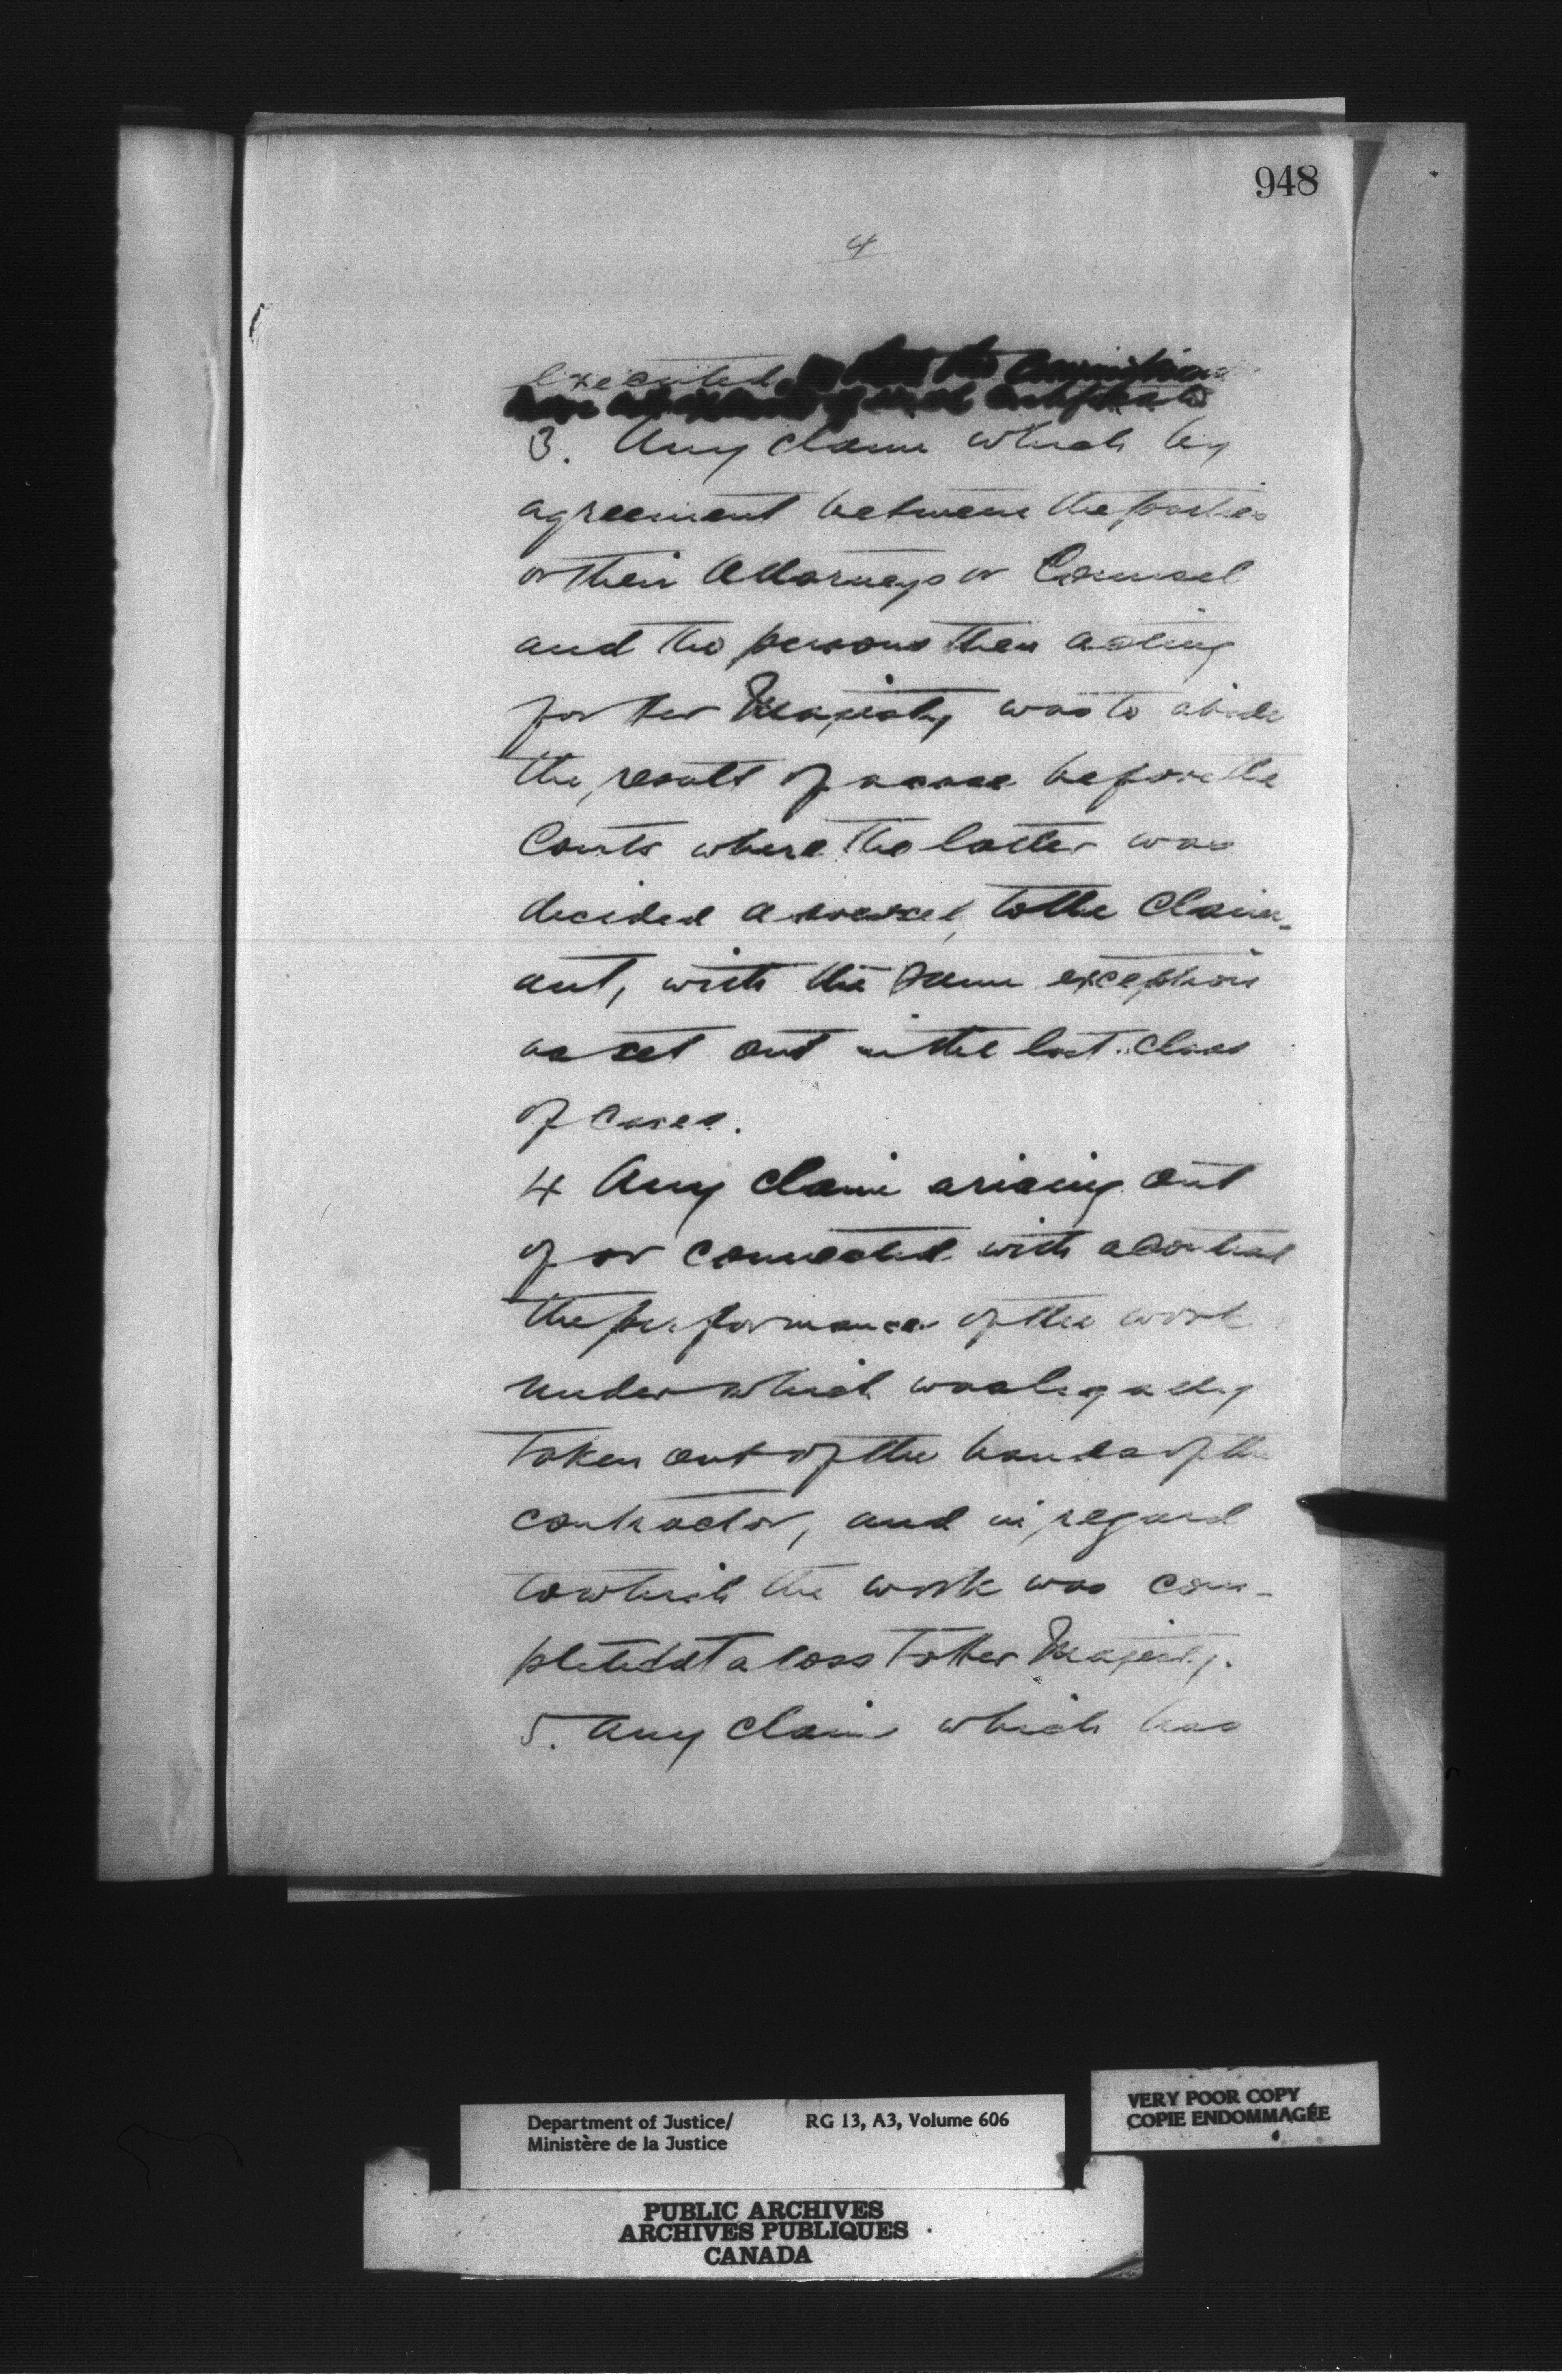 948
4
executed
3. Any claim which by
agreement between the parties
or their Attorneys or Counsel
and the persons then acting
for Her Majesty was to abide
the result of a case before the
Courts where the latter was
decided adversely to the Claim-
ant, with the same exception
as set out in the last class
of cases.
4 Any claim arising out
of or connected with a Contract
the performance of the work
under which was legally
taken out of the hands of the
contractor, and in regard
to which the work was com-
pleted at a loss to Her Majesty.
5. Any claim which has
Department of Justice/ RG 13, A3, Volume 606
Ministère de la Justice
VERY POOR COPY
COPIE ENDOMMAGÉE
PUBLIC ARCHIVES
ARCHIVES PUBLIQUES
CANADA